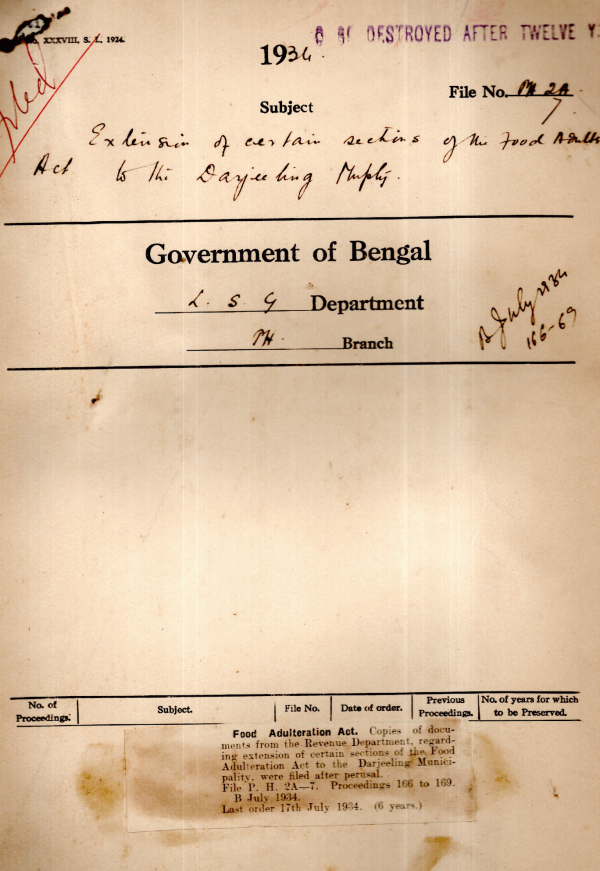 XXXVIII, S. L, 1924.
DESTROYED AFTER TWELVE Y
1934.
File No. PH 2A
7
Subject
Extension of certain sections of the Food Adultn
Act to the Darjeeling Muplty.
Government of Bengal
L. S. G Department
PH. Branch
B July 1934
166-69
No. of Proceedings. Subject. File No. Date of order. Previous Proceedings. No. of years for which to be Preserved.
Food Adulteration Act. Copies of docu-
ments from the Revenue Department, regard-
ing extension of certain sections of the Food
Adulteration Act to the Darjeeling Munici-
pality, were filed after perusal.
File P. H. 2A—7. Proceedings 166 to 169.
B July 1934.
Last order 17th July 1934. (6 years.)